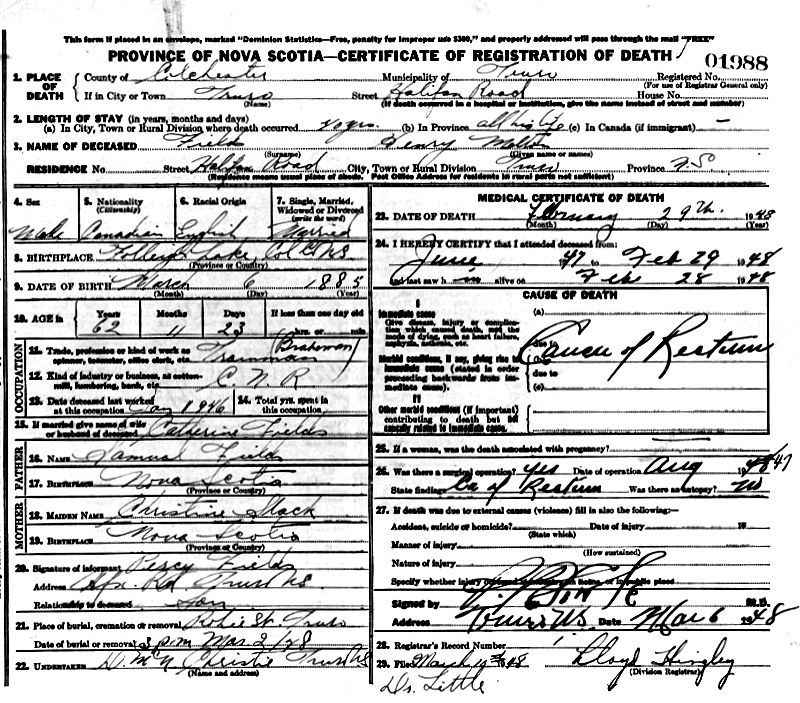 This form if placed in an envelope, marked "Dominion Statistics—Free, penalty for improper use $300," and properly addressed will pass through the mail "FREE"
PROVINCE OF NOVA SCOTIA—CERTIFICATE OF REGISTRATION OF DEATH
01988
1. PLACE OF DEATH
County of Colchester Municipality of Truro Registered No.
(For use of Registrar General only)
If in City or Town Truro Street Halifax Road House No.
(Name) (If death occurred in a hospital or institution, give the name instead of street and number)
2. LENGTH OF STAY (in years, months and days)
(a) In City, Town or Rural Division where death occurred yrs. (b) In Province all his life (c) In Canada (if immigrant) —
3. NAME OF DECEASED Fields Henry
(Surname) (Given name or names)
RESIDENCE No. Street Halifax Road City, Town or Rural Division Truro Province
(Residence means usual place of abode. Post Office Address for residents in rural parts not sufficient)
4. Sex 5. Nationality (Citizenship) 6. Racial Origin 7. Single, Married, Widowed or Divorced (write the word)
Male Canadian English Married
8. BIRTHPLACE Folleigh Lake, Col Co NS
(Province or Country)
9. DATE OF BIRTH March 6 1885
(Month) (Day) (Year)
10. AGE in Years Months Days If less than one day old
62 11 23 hrs. or min.
OCCUPATION
11. Trade, profession or kind of work as spinner, teamster, office clerk, etc. Trainman (Brakeman)
12. Kind of industry or business, as cotton-mill, lumbering, bank, etc. C. N. R
13. Date deceased last worked at this occupation Jan 1946 14. Total yrs. spent in this occupation
15. If married give name of wife or husband of deceased Catherine Fields
FATHER
16. NAME Samuel Fields
17. BIRTHPLACE Nova Scotia
(Province or Country)
MOTHER
18. MAIDEN NAME Christine Slack
19. BIRTHPLACE Nova Scotia
(Province or Country)
20. Signature of informant Percy Fields
Address Hfx. Rd Truro NS
Relationship to deceased Son
21. Place of burial, cremation or removal Robie St. Truro
Date of burial or removal 3 p.m Mar. 2/48
22. UNDERTAKER D. McN Christie Truro NS
(Name and address)
MEDICAL CERTIFICATE OF DEATH
23. DATE OF DEATH February 29th 1948
(Month) (Day) (Year)
24. I HEREBY CERTIFY that I attended deceased from:
June 47 to Feb 29 1948
and last saw h im alive on Feb 28 1948
CAUSE OF DEATH
I
Immediate cause
Give disease, injury or complication which caused death, not the mode of dying, such as heart failure, asphyxia, asthenia, etc.
(a)
due to
Morbid conditions, if any, giving rise to immediate cause (stated in order proceeding backwards from immediate cause).
Cancer of Rectum
due to
(c)
II
Other morbid conditions (if important) contributing to death but not causally related to immediate cause.
25. If a woman, was the death associated with pregnancy?
26. Was there a surgical operation? yes Date of operation Aug 1948 /47
State findings Ca of Rectum Was there an autopsy? No
27. If death was due to external causes (violence) fill in also the following:—
Accident, suicide or homicide? Date of injury 19
(State which)
Manner of injury
(How sustained)
Nature of injury
Specify whether injury occurred in industry, in home, or in public place
Signed by M.D.
Address Truro NS Date Mar 6 1948
28. Registrar's Record Number
29. Filed March 1948 Lloyd Hingley
(Division Registrar)
Dr. Little